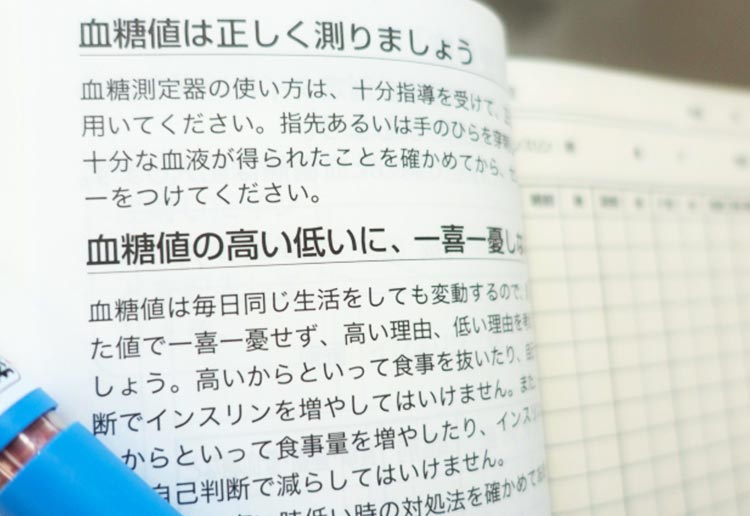 血糖値は正しく測りましょう
血糖測定器の使い方は、十分指導を受けて、正
用いてください。指先あるいは手のひらを穿刺
十分な血液が得られたことを確かめてから、セ
ーをつけてください。
血糖値の高い低いに、一喜一憂しな
血糖値は毎日同じ生活をしても変動するので、
た値で一喜一憂せず、高い理由、低い理由を考
しょう。高いからといって食事を抜いたり、自己
断でインスリンを増やしてはいけません。また、
からといって食事量を増やしたり、インスリ
自己判断で減らしてはいけません。
時低い時の対処法を確かめて